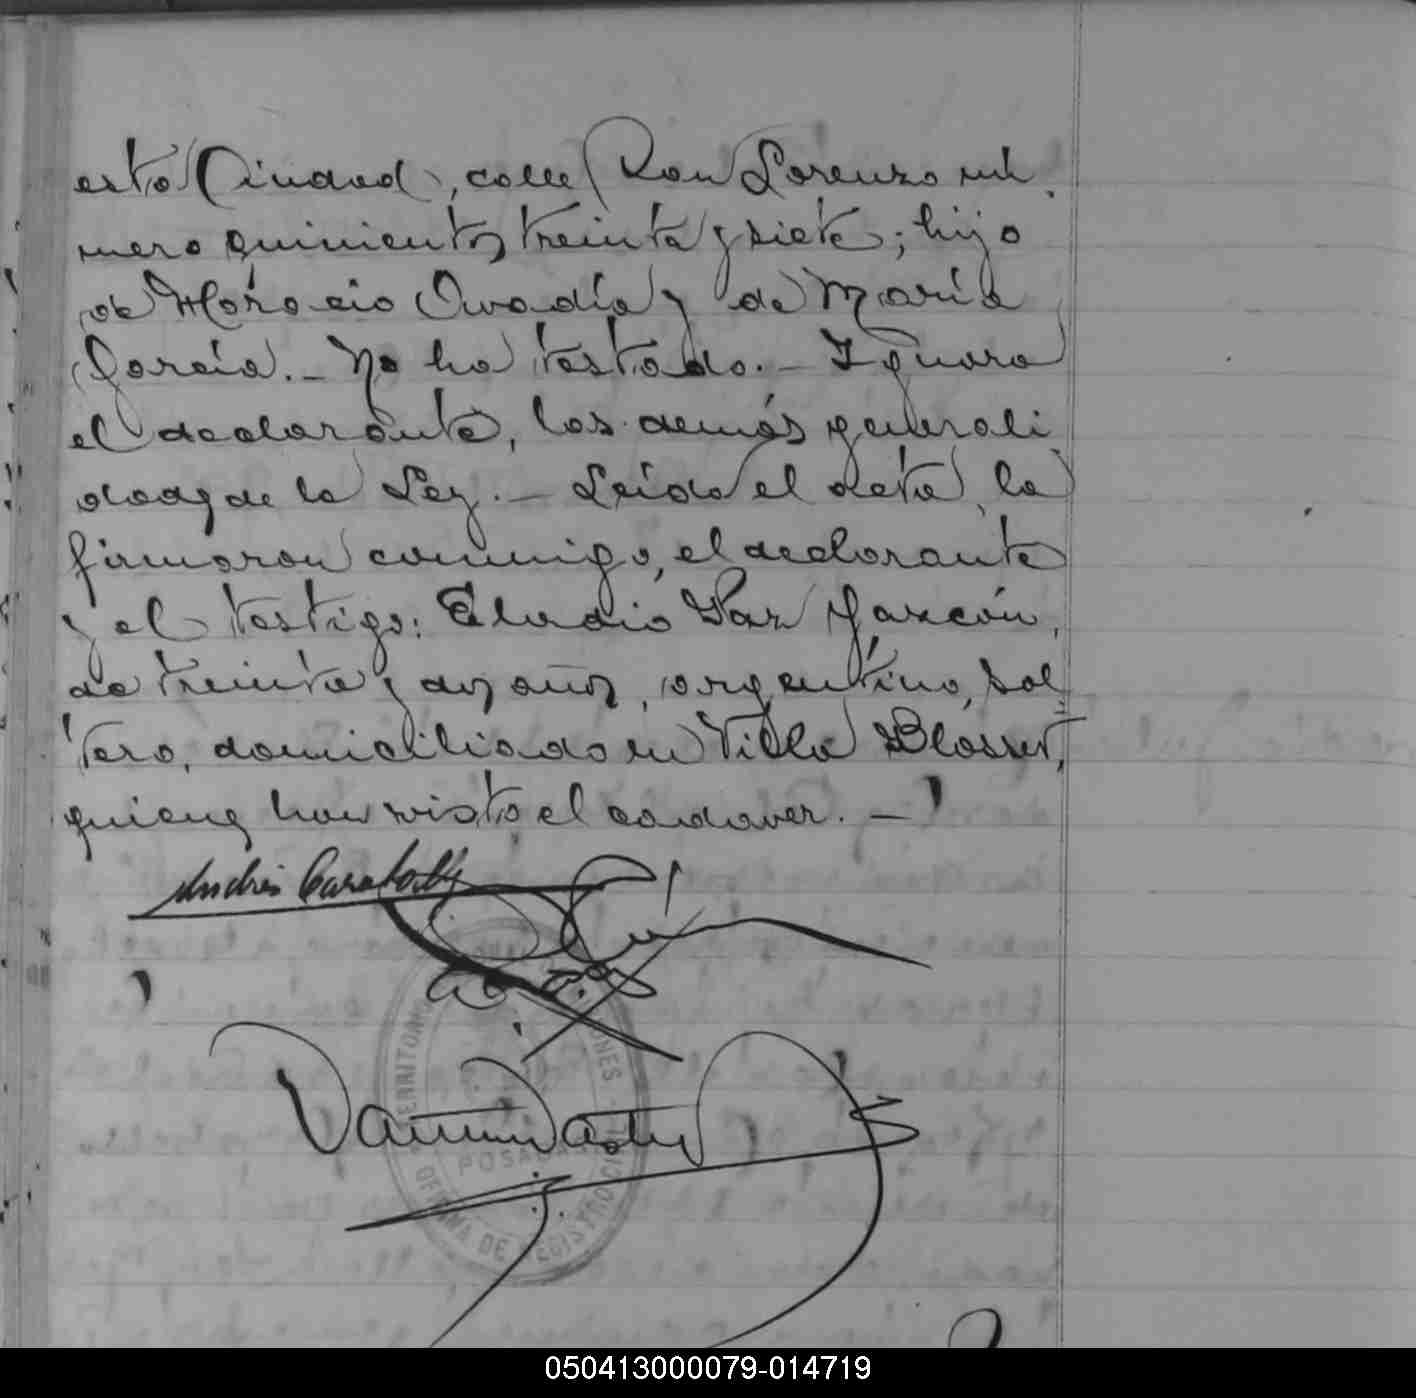 esta Ciudad, calle San Lorenzo nú-
mero quinientos treinta y siete; hijo
de Horacio Ovadía y de María
García.- No ha testado.- Ignora
el declarante, las demás generali
dades de la Ley.- Leída el acta, la
firmaron conmigo, el declarante
y el testigo: Eladio Paz Garzón,
de treinta y dos años, argentino, sol
tero, domiciliado en Villa Blosset,
quienes han visto el cadaver.-
Andrés
TERRITORIO MISIONES
POSADAS
OFICINA DE REGISTRO CIVIL
050413000079-014719